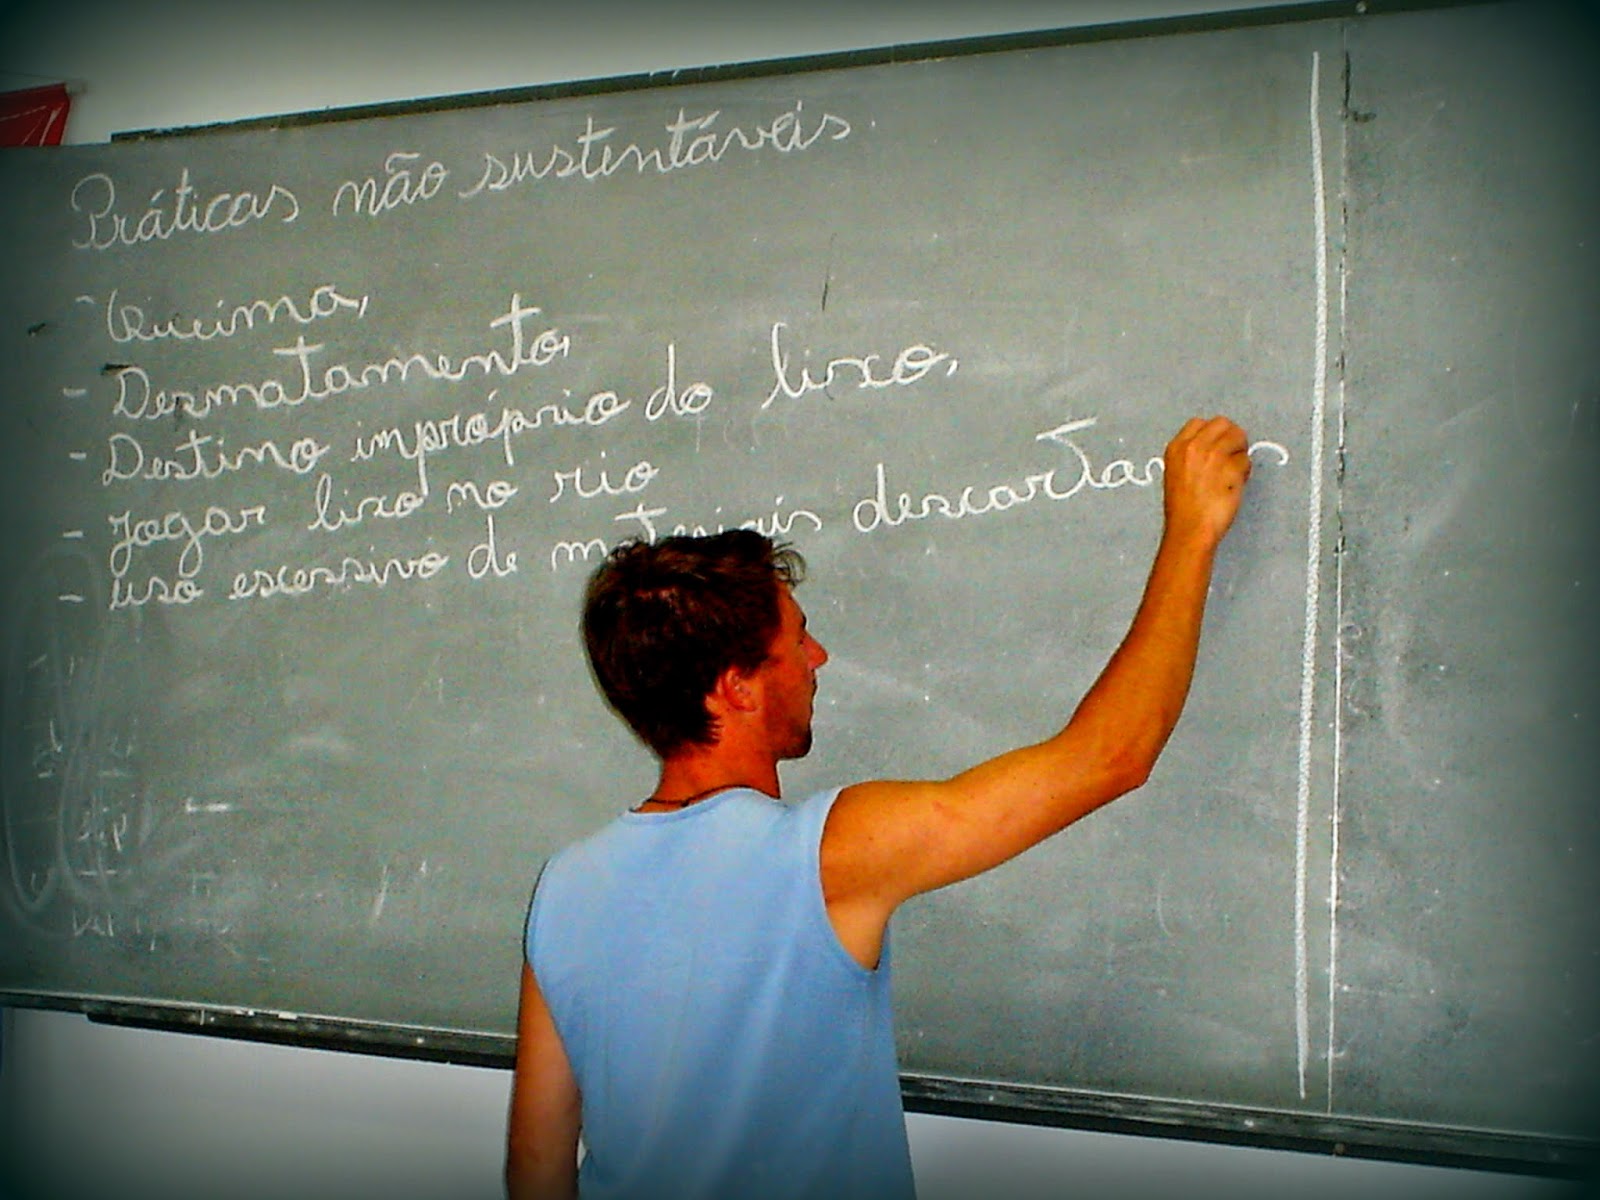 Práticas não sustentáveis.
- Queima,
- Desmatamento,
- Destino impróprio do lixo,
- Jogar lixo no rio
- uso excessivo de materiais descartáveis